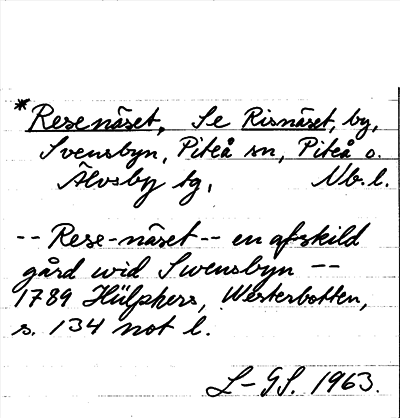 *Resenäset, Se Risnäset, by,
Svensbyn, Piteå sn, Piteå o.
Älvsby tg, Nb. l.
-- Rese-näset -- en afskild
gård wid Swensbyn --
1789 Hülphers, Westerbotten,
s. 134 not l.
L-GS. 1963.